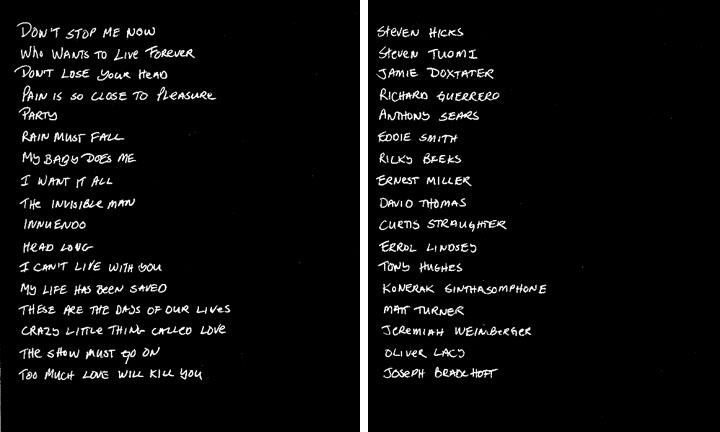 DON'T STOP ME NOW
WHO WANTS TO LIVE FOREVER
DON'T LOSE YOUR HEAD
PAIN IS SO CLOSE TO PLEASURE
PARTY
RAIN MUST FALL
MY BABY DOES ME
I WANT IT ALL
THE INVISIBLE MAN
INNUENDO
HEAD LONG
I CAN'T LIVE WITH YOU
MY LIFE HAS BEEN SAVED
THESE ARE THE DAYS OF OUR LIVES
CRAZY LITTLE THING CALLED LOVE
THE SHOW MUST GO ON
TOO MUCH LOVE WILL KILL YOU
STEVEN HICKS
STEVEN TUOMI
JAMIE DOXTATER
RICHARD GUERRERO
ANTHONY SEARS
EDDIE SMITH
RICKY BEEKS
ERNEST MILLER
DAVID THOMAS
CURTIS STRAUGHTER
ERROL LINDSEY
TONY HUGHES
KONERAK SINTHASOMPHONE
MATT TURNER
JEREMIAH WEINBERGER
OLIVER LACY
JOSEPH BRADEHOFT